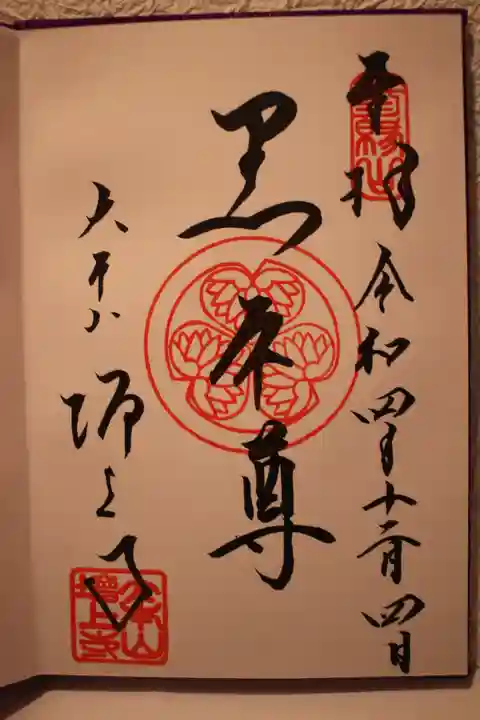 奉拝 令和四年十二月四日
黒本尊
大本山 増上寺
三縁山
増上寺